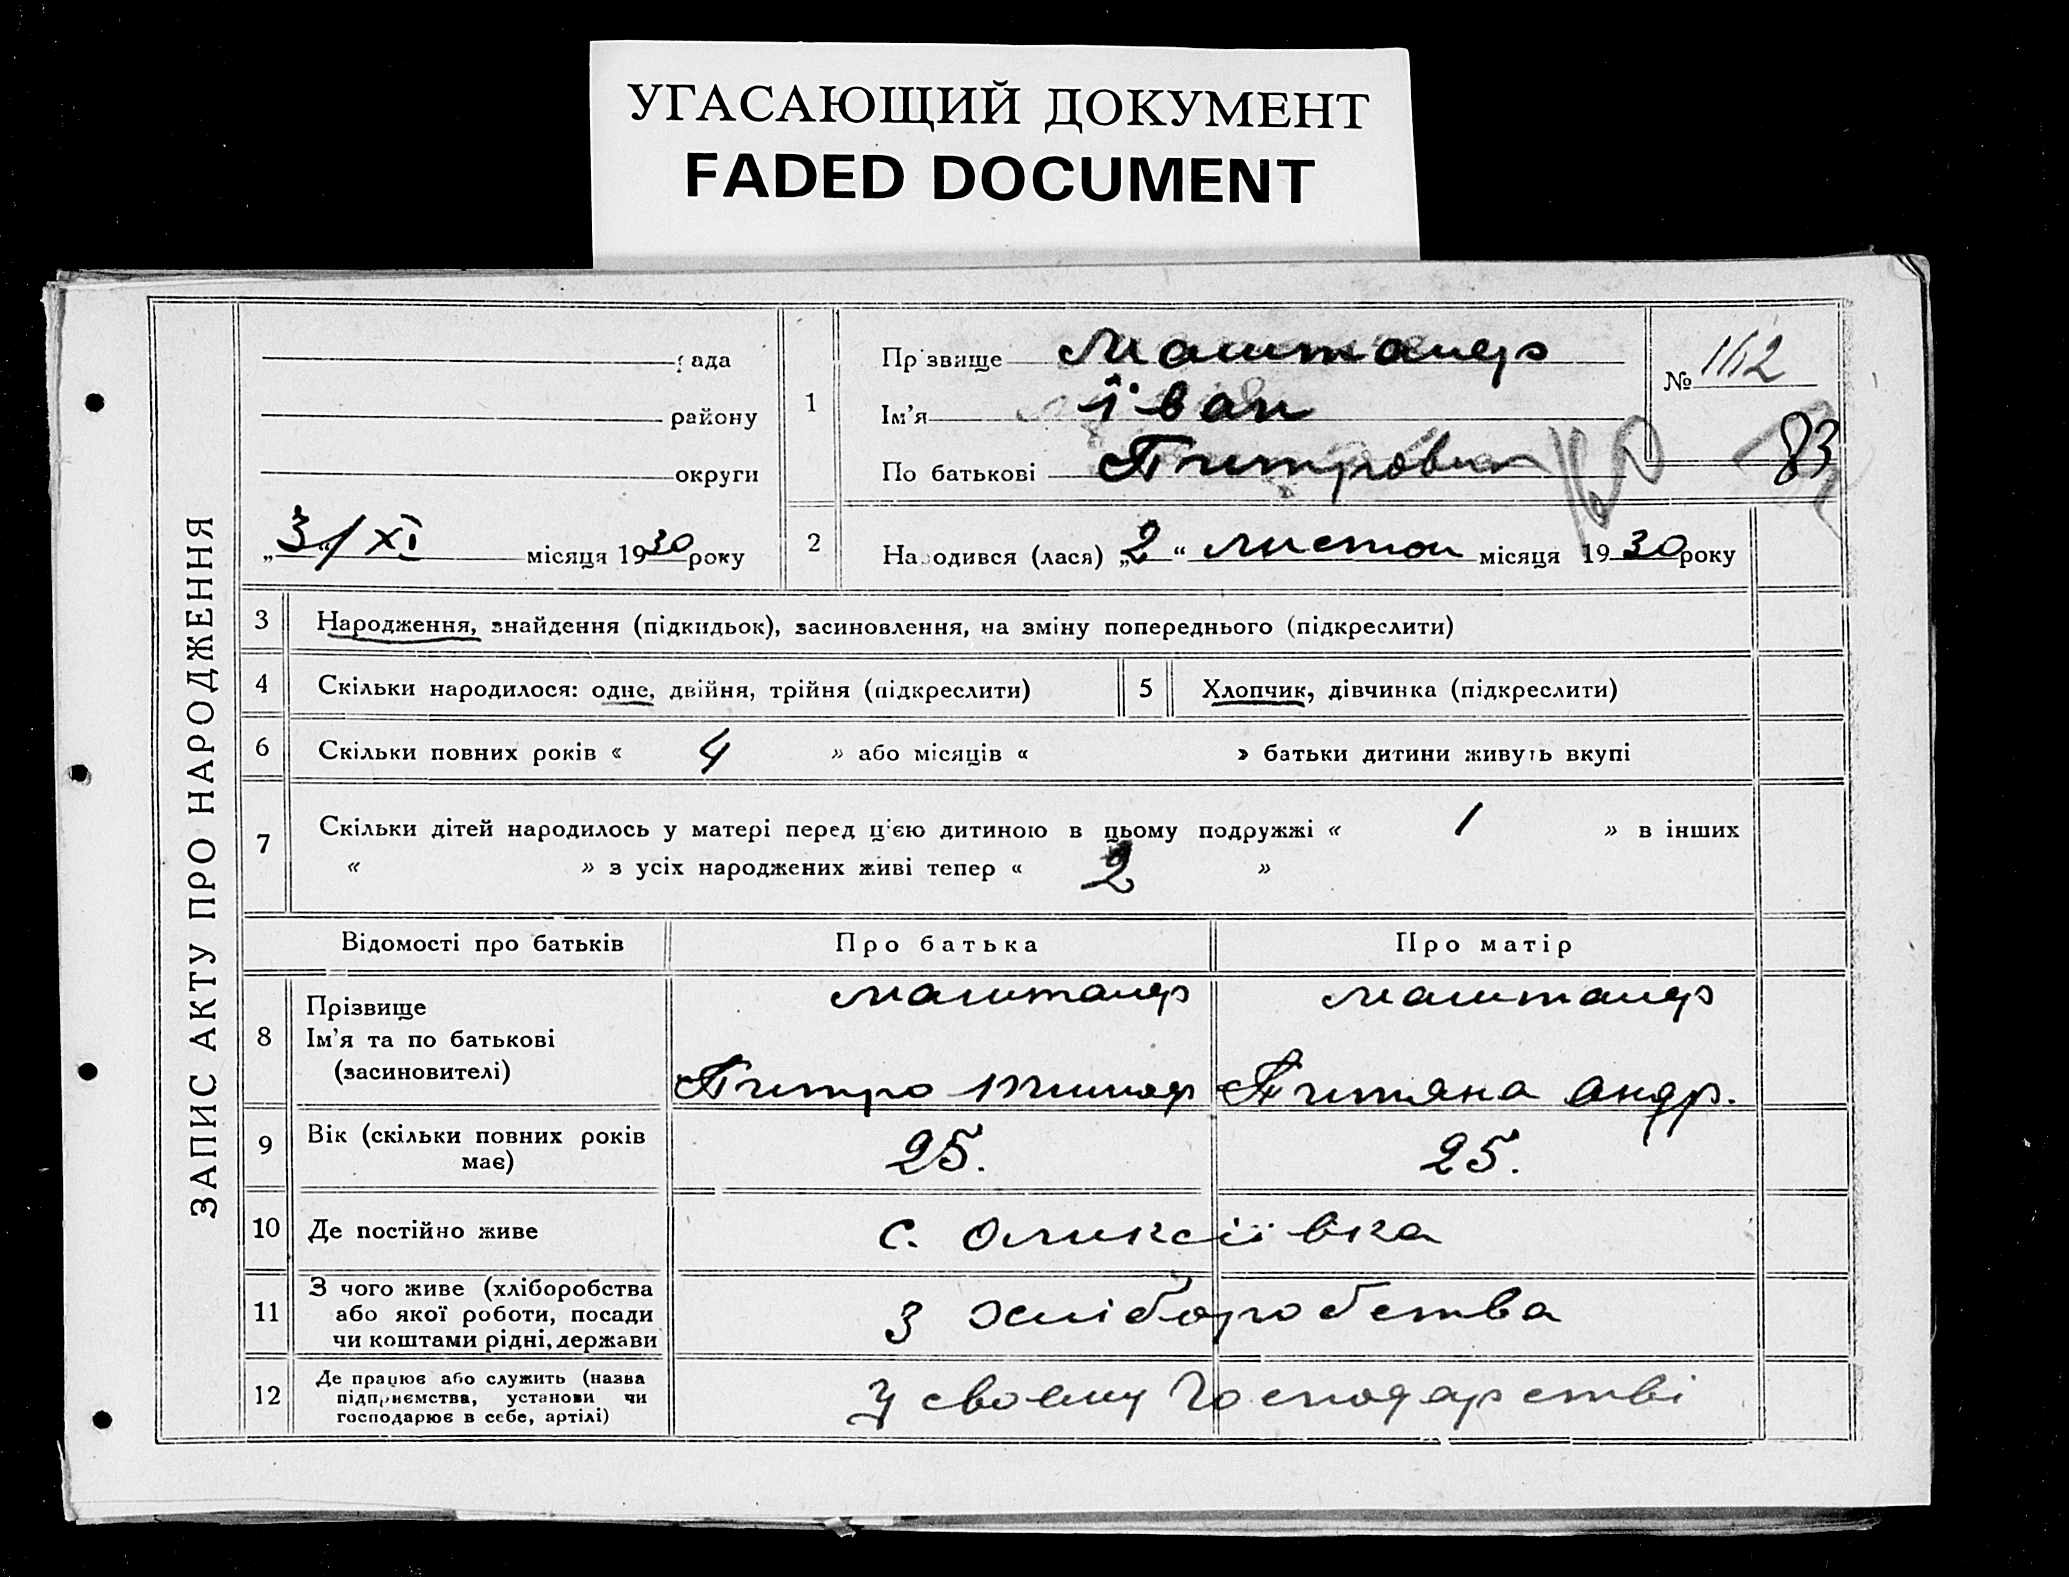 УГАСАЮЩИЙ ДОКУМЕНТ
FADED DOCUMENT
ЗАПИС АКТУ ПРО НАРОДЖЕННЯ
рада
району
округи
„3“/ XI місяця 1930 року
1
Прізвище Машталер
Ім'я Іван
По батькові Питрович
№ 162
83
2 Народився (лася) „2“ листоп місяця 1930 року
3 Народження, знайдення (підкидьок), засиновлення, на зміну попереднього (підкреслити)
4 Скільки народилося: одне, двійня, трійня (підкреслити)
5 Хлопчик, дівчинка (підкреслити)
6 Скільки повних років « 4 » або місяців « » батьки дитини живуть вкупі
7 Скільки дітей народилось у матері перед ц'єю дитиною в цьому подружжі « 1 » в інших
« » з усіх народжених живі тепер « 2 »
Відомості про батьків Про батька Про матір
8 Прізвище
Ім'я та по батькові
(засиновителі)
Машталер
Питро
Машталер
Титяна Андр.
9 Вік (скільки повних років
має)
25. 25.
10 Де постійно живе с. Оликсіївка
11 З чого живе (хліборобства
або якої роботи, посади
чи коштами рідні, держави
З хліборобства
12 Де працює або служить (назва
підприємства, установи чи
господарює в себе, артілі)
У своєму господарстві